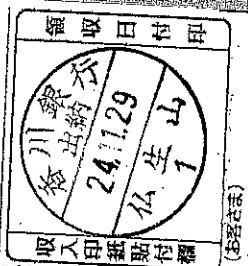 領収日付印
香川銀行
出納
24.11.29
仏生山
1
収入印紙貼付欄
(お客さま)